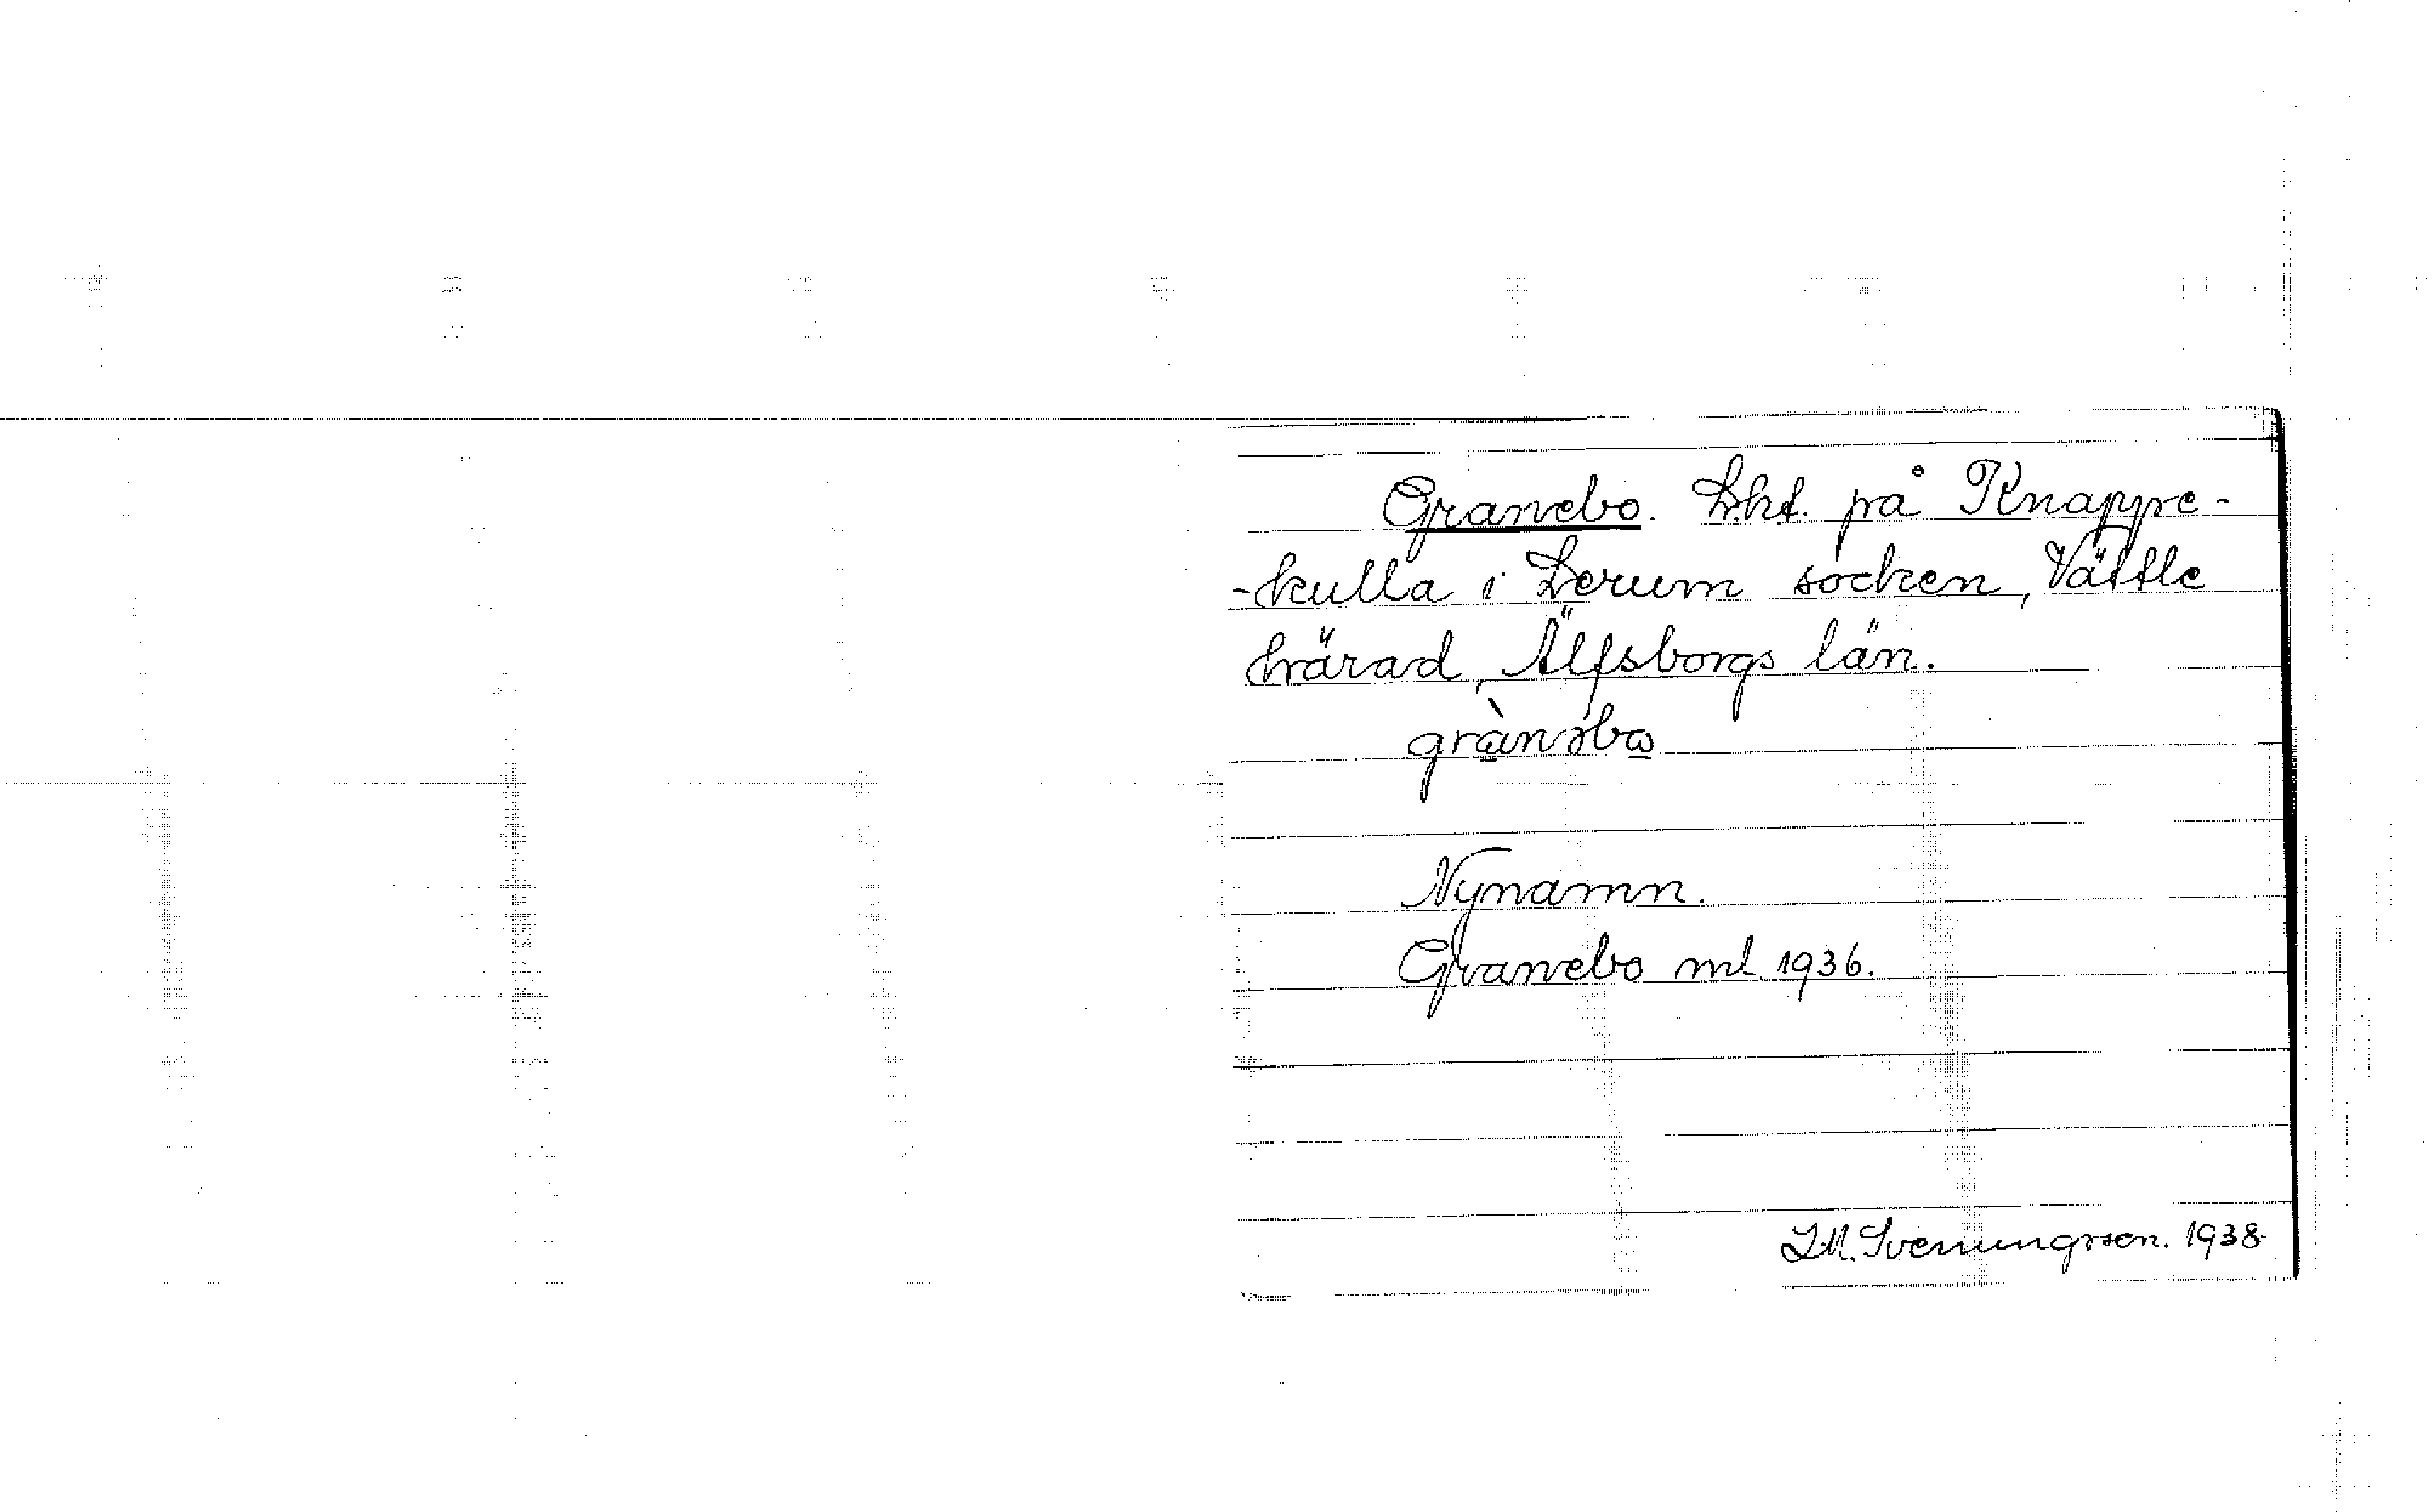 Granebo. Lht. på Knappe-
-kulla i Lerum socken, Vättle
härad, Älfsborgs län.
grànəbω
Nynamn.
Granebo ml. 1936.
I.M. Svenungsson. 1938.